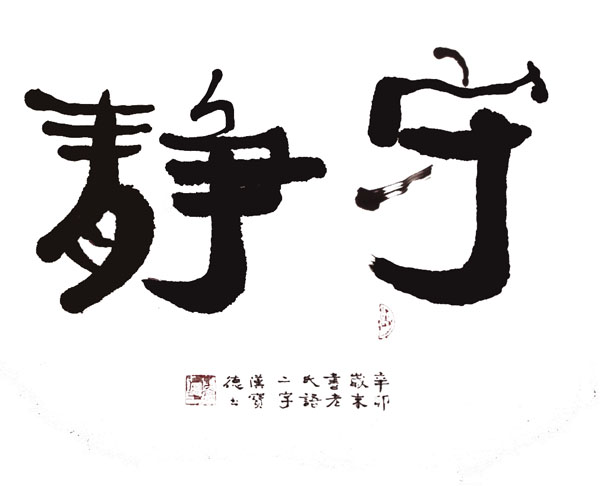 守靜
辛卯
歲末
書老
氏語
二字
漢寶
德